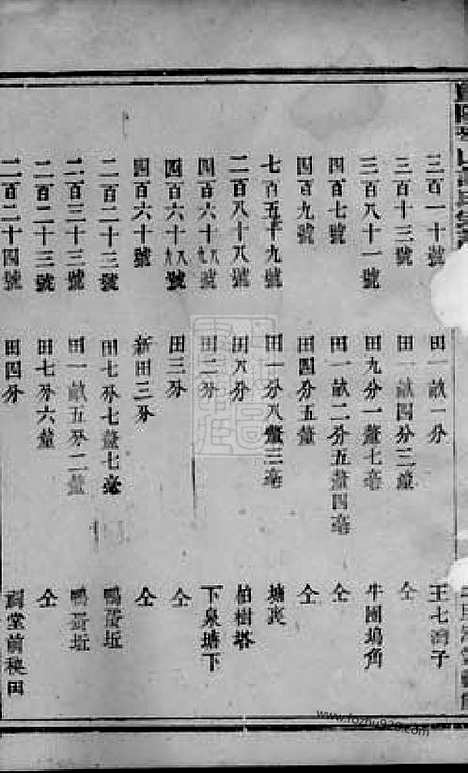 三百一十號 田一畝一分 王七湾子
三百十三號 田一畝四分二釐 仝
三百八十一號 田九分一釐七毫 牛圈塢角
四百七號 田一畝二分五釐四毫 仝
四百九號 田四分五釐 仝
七百五十九號 田一分八釐三毫 塘裏
二百八十八號 田八分 柏樹塔
四百六十九號 田二分 下泉塘下
四百六十八號 田三分 仝
四百六十號 新田三分 仝
二百二十三號 田七分七釐七毫 鴨蛋坵
二百三十三號 田一畝五分二釐 鴨蛋坵
二百二十三號 田七分六釐 仝
二百二十四號 田四分 祠堂前秧田
www.fozhu920.com